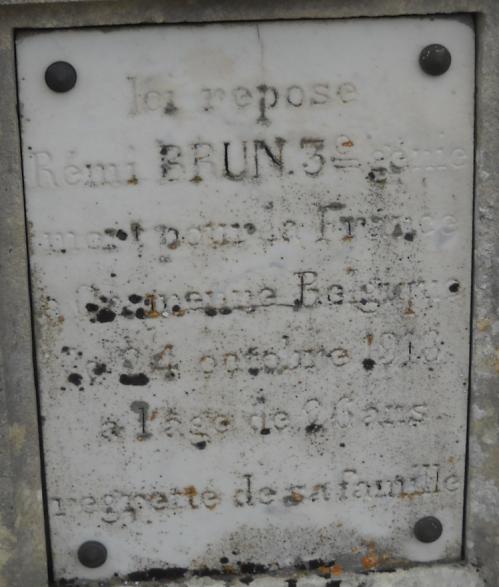 Ici repose
Rémi BRUN. 3e génie
mort pour la France
Belgique
le 24 octobre 1918
à l'âge de 26 ans
regretté de sa famille